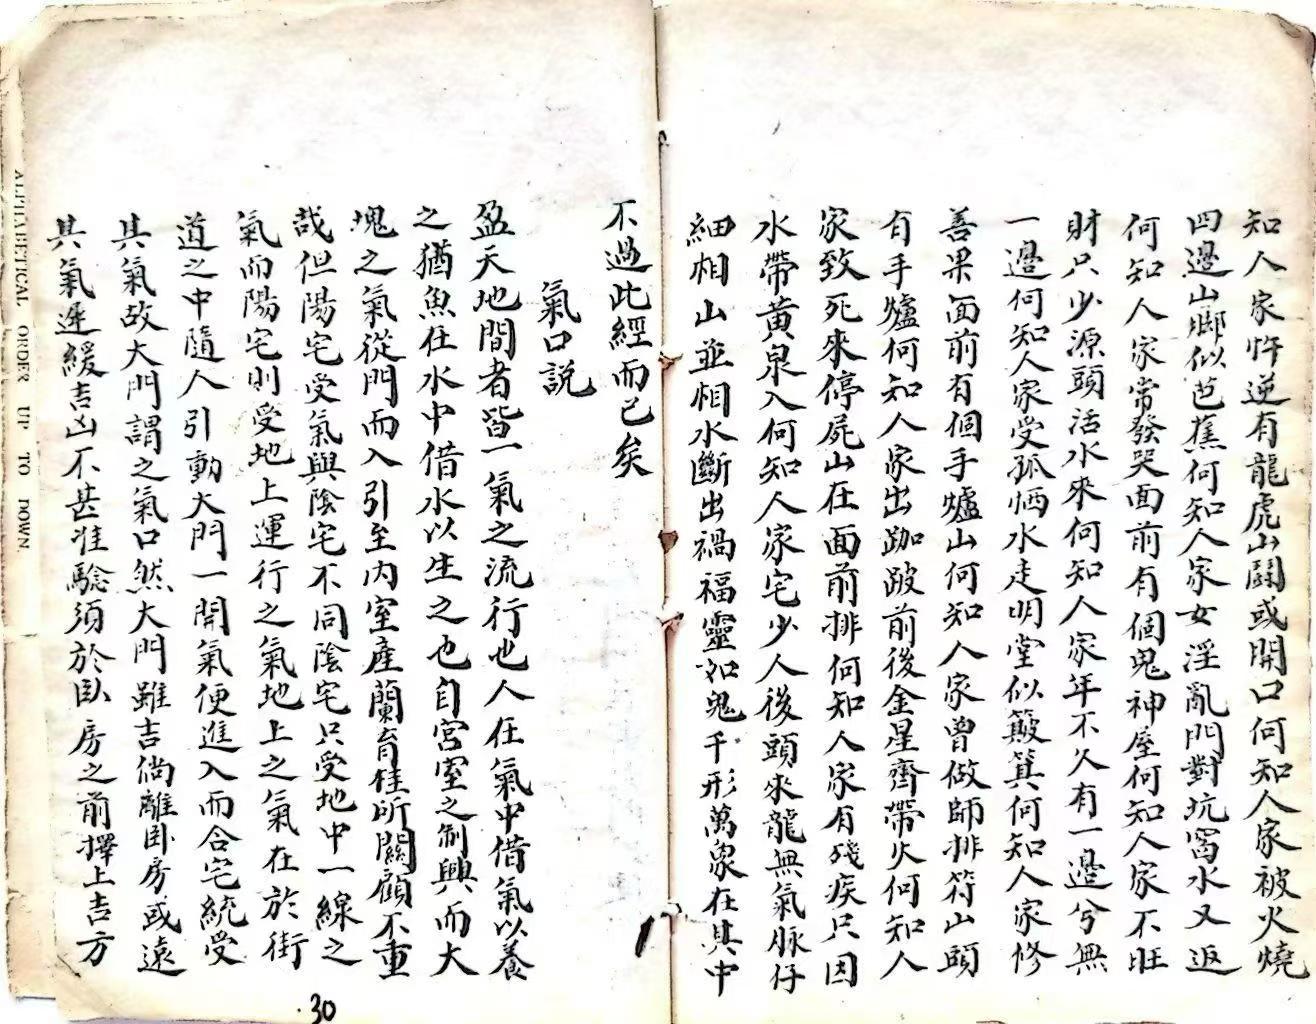 知人家忤逆有龍虎山鬪或開口何知人家被火燒
四邊山腳似芭蕉何知人家女淫亂門對坑窩水又返
何知人家常發哭面前有個鬼神座何知人家不旺
財只少源頭活水來何知人家年不久有一邊兮無
一邊何知人家受孤恓水走明堂似簸箕何知人家修
善果面前有個手爐山何知人家曾做師排符山頭
有手爐何知人家出跏跛前後金星齊帶火何知人
家致死來停屍山在面前排何知人家有殘疾只因
水帶黃泉入何知人家宅少人後頭來龍無氣脉仔
細相山並相水斷出禍福靈如鬼千形萬象在其中
不過此經而已矣
氣口説
盈天地間者皆一氣之流行也人在氣中借氣以養
之猶魚在水中借水以生之也自宮室之制興而大
塊之氣從門而入引至内室產蘭育桂所關顧不重
哉但陽宅受氣與陰宅不同陰宅只受地中一線之
氣而陽宅則受地上運行之氣地上之氣在於街
道之中隨人引動大門一開氣便進入而合宅統受
其氣故大門謂之氣口然大門雖吉倘離卧房或遠
其氣進緩吉凶不甚准驗須於臥房之前擇上吉方
30
ALPHABETICAL ORDER UP TO DOWN